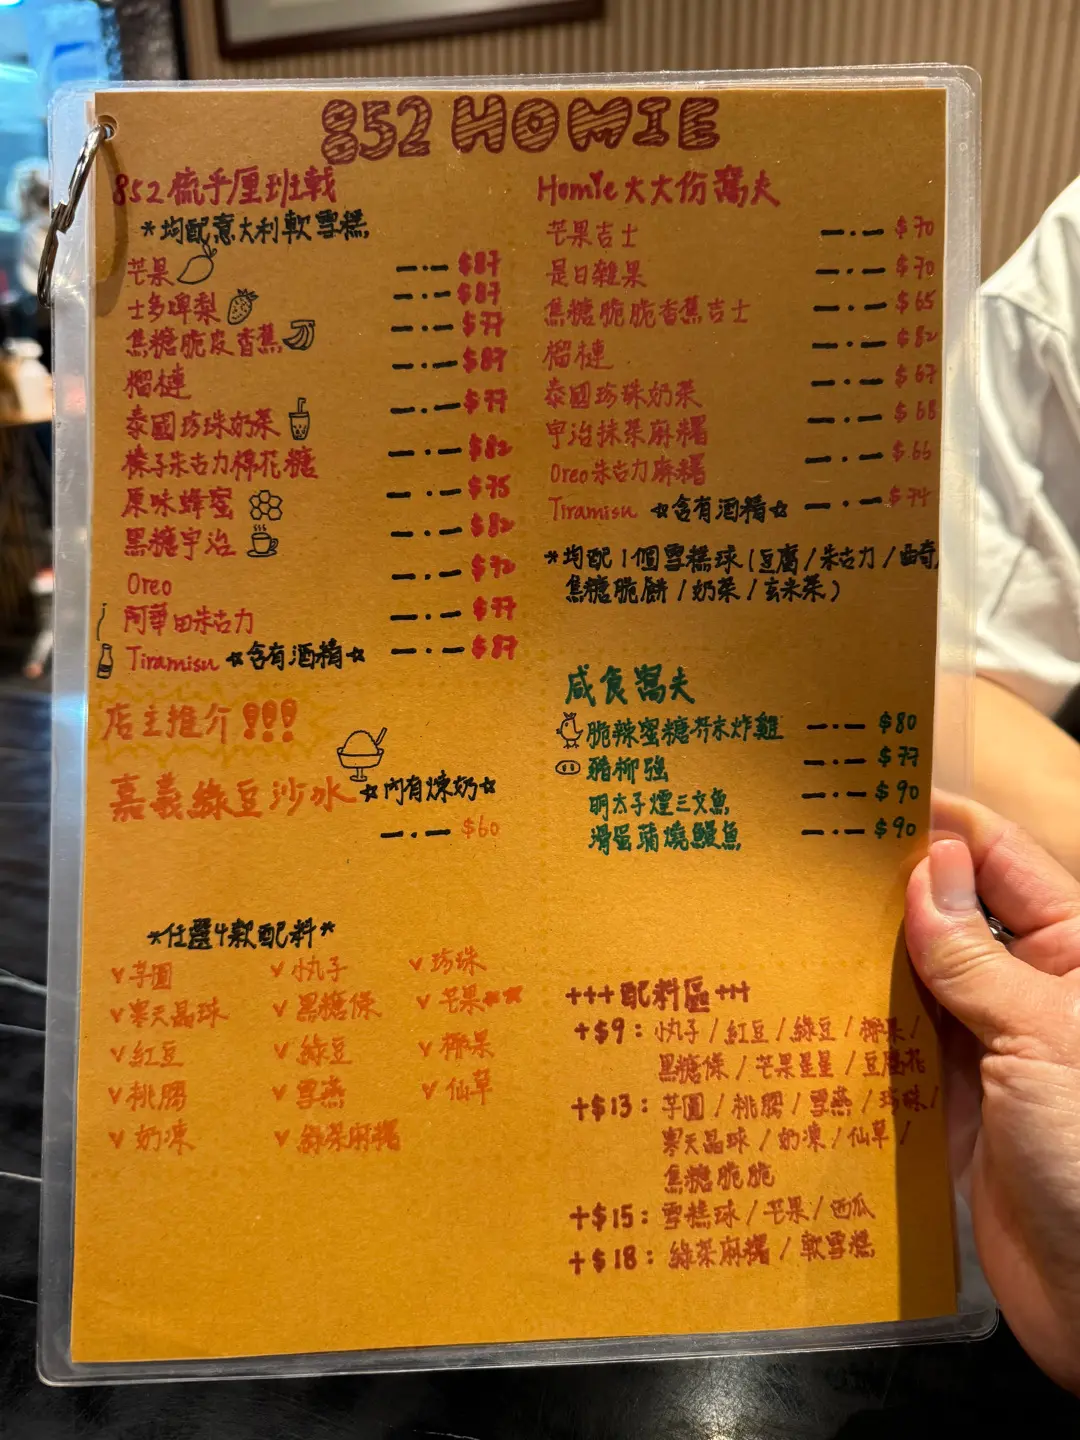 852 HOMIE
852 梳乎厘班戟
*均配意大利軟雪糕
芒果 —·— $87
士多啤梨 —·— $87
焦糖脆皮香蕉 —·— $77
榴槤 —·— $87
泰國珍珠奶茶 —·— $77
榛子朱古力棉花糖 —·— $82
原味蜂蜜 —·— $75
黑糖宇治 —·— $82
Oreo —·— $72
阿華田朱古力 —·— $77
Tiramisu ☆含有酒精☆ —·— $87
店主推介!!!
嘉義綠豆沙冰 ☆內有煉奶☆
—·— $60
*任選4款配料*
v 芋圓 v 小丸子 v 珍珠
v 寒天晶球 v 黑糖條 v 芒果
v 紅豆 v 綠豆 v 椰果
v 桃膠 v 雪燕 v 仙草
v 奶凍 v 綠茶麻糬
Homie 大大份窩夫
芒果吉士 —·— $70
是日雜果 —·— $70
焦糖脆脆香蕉吉士 —·— $65
榴槤 —·— $82
泰國珍珠奶茶 —·— $67
宇治抹茶麻糬 —·— $68
Oreo朱古力麻糬 —·— $66
Tiramisu ☆含有酒精☆ —·— $74
*均配1個雪糕球(豆腐/朱古力/曲奇/
焦糖脆餅/奶茶/玄米茶)
咸食窩夫
脆辣蜜糖芥末炸雞 —·— $80
豬柳強 —·— $77
明太子煙三文魚 —·— $90
滑蛋蒲燒鰻魚 —·— $90
+++配料區+++
+$9：小丸子/紅豆/綠豆/椰果/
黑糖條/芒果星星/豆腐花
+$13：芋圓/桃膠/雪燕/珍珠/
寒天晶球/奶凍/仙草/
焦糖脆脆
+$15：雪糕球/芒果/西瓜
+$18：綠茶麻糬/軟雪糕